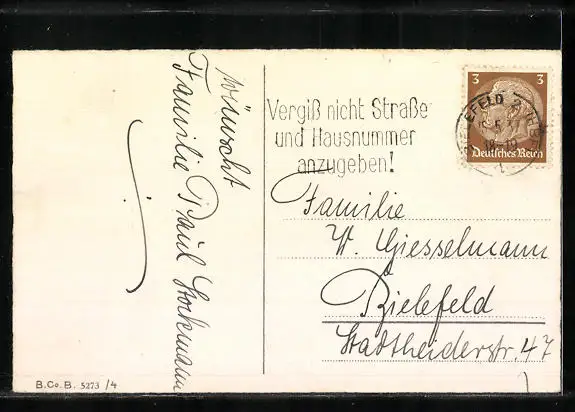 wünscht
Familie Paul Stockmann
Vergiß nicht Straße
und Hausnummer
anzugeben!
3 3
Deutsches Reich
Familie
W. Giesselmann
Bielefeld
Stadtheiderstr. 47
B.Co.B. 5273 /4